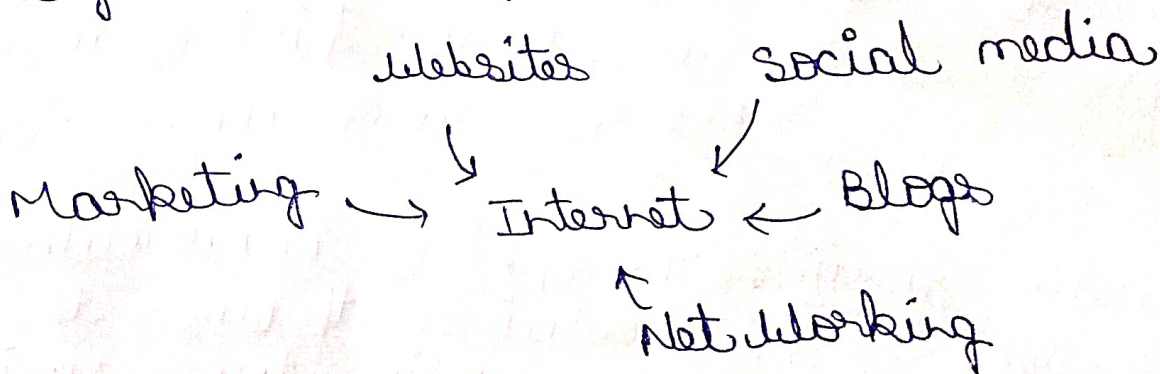 Websites social media
Marketing → Internet ← Blogs
Net Working